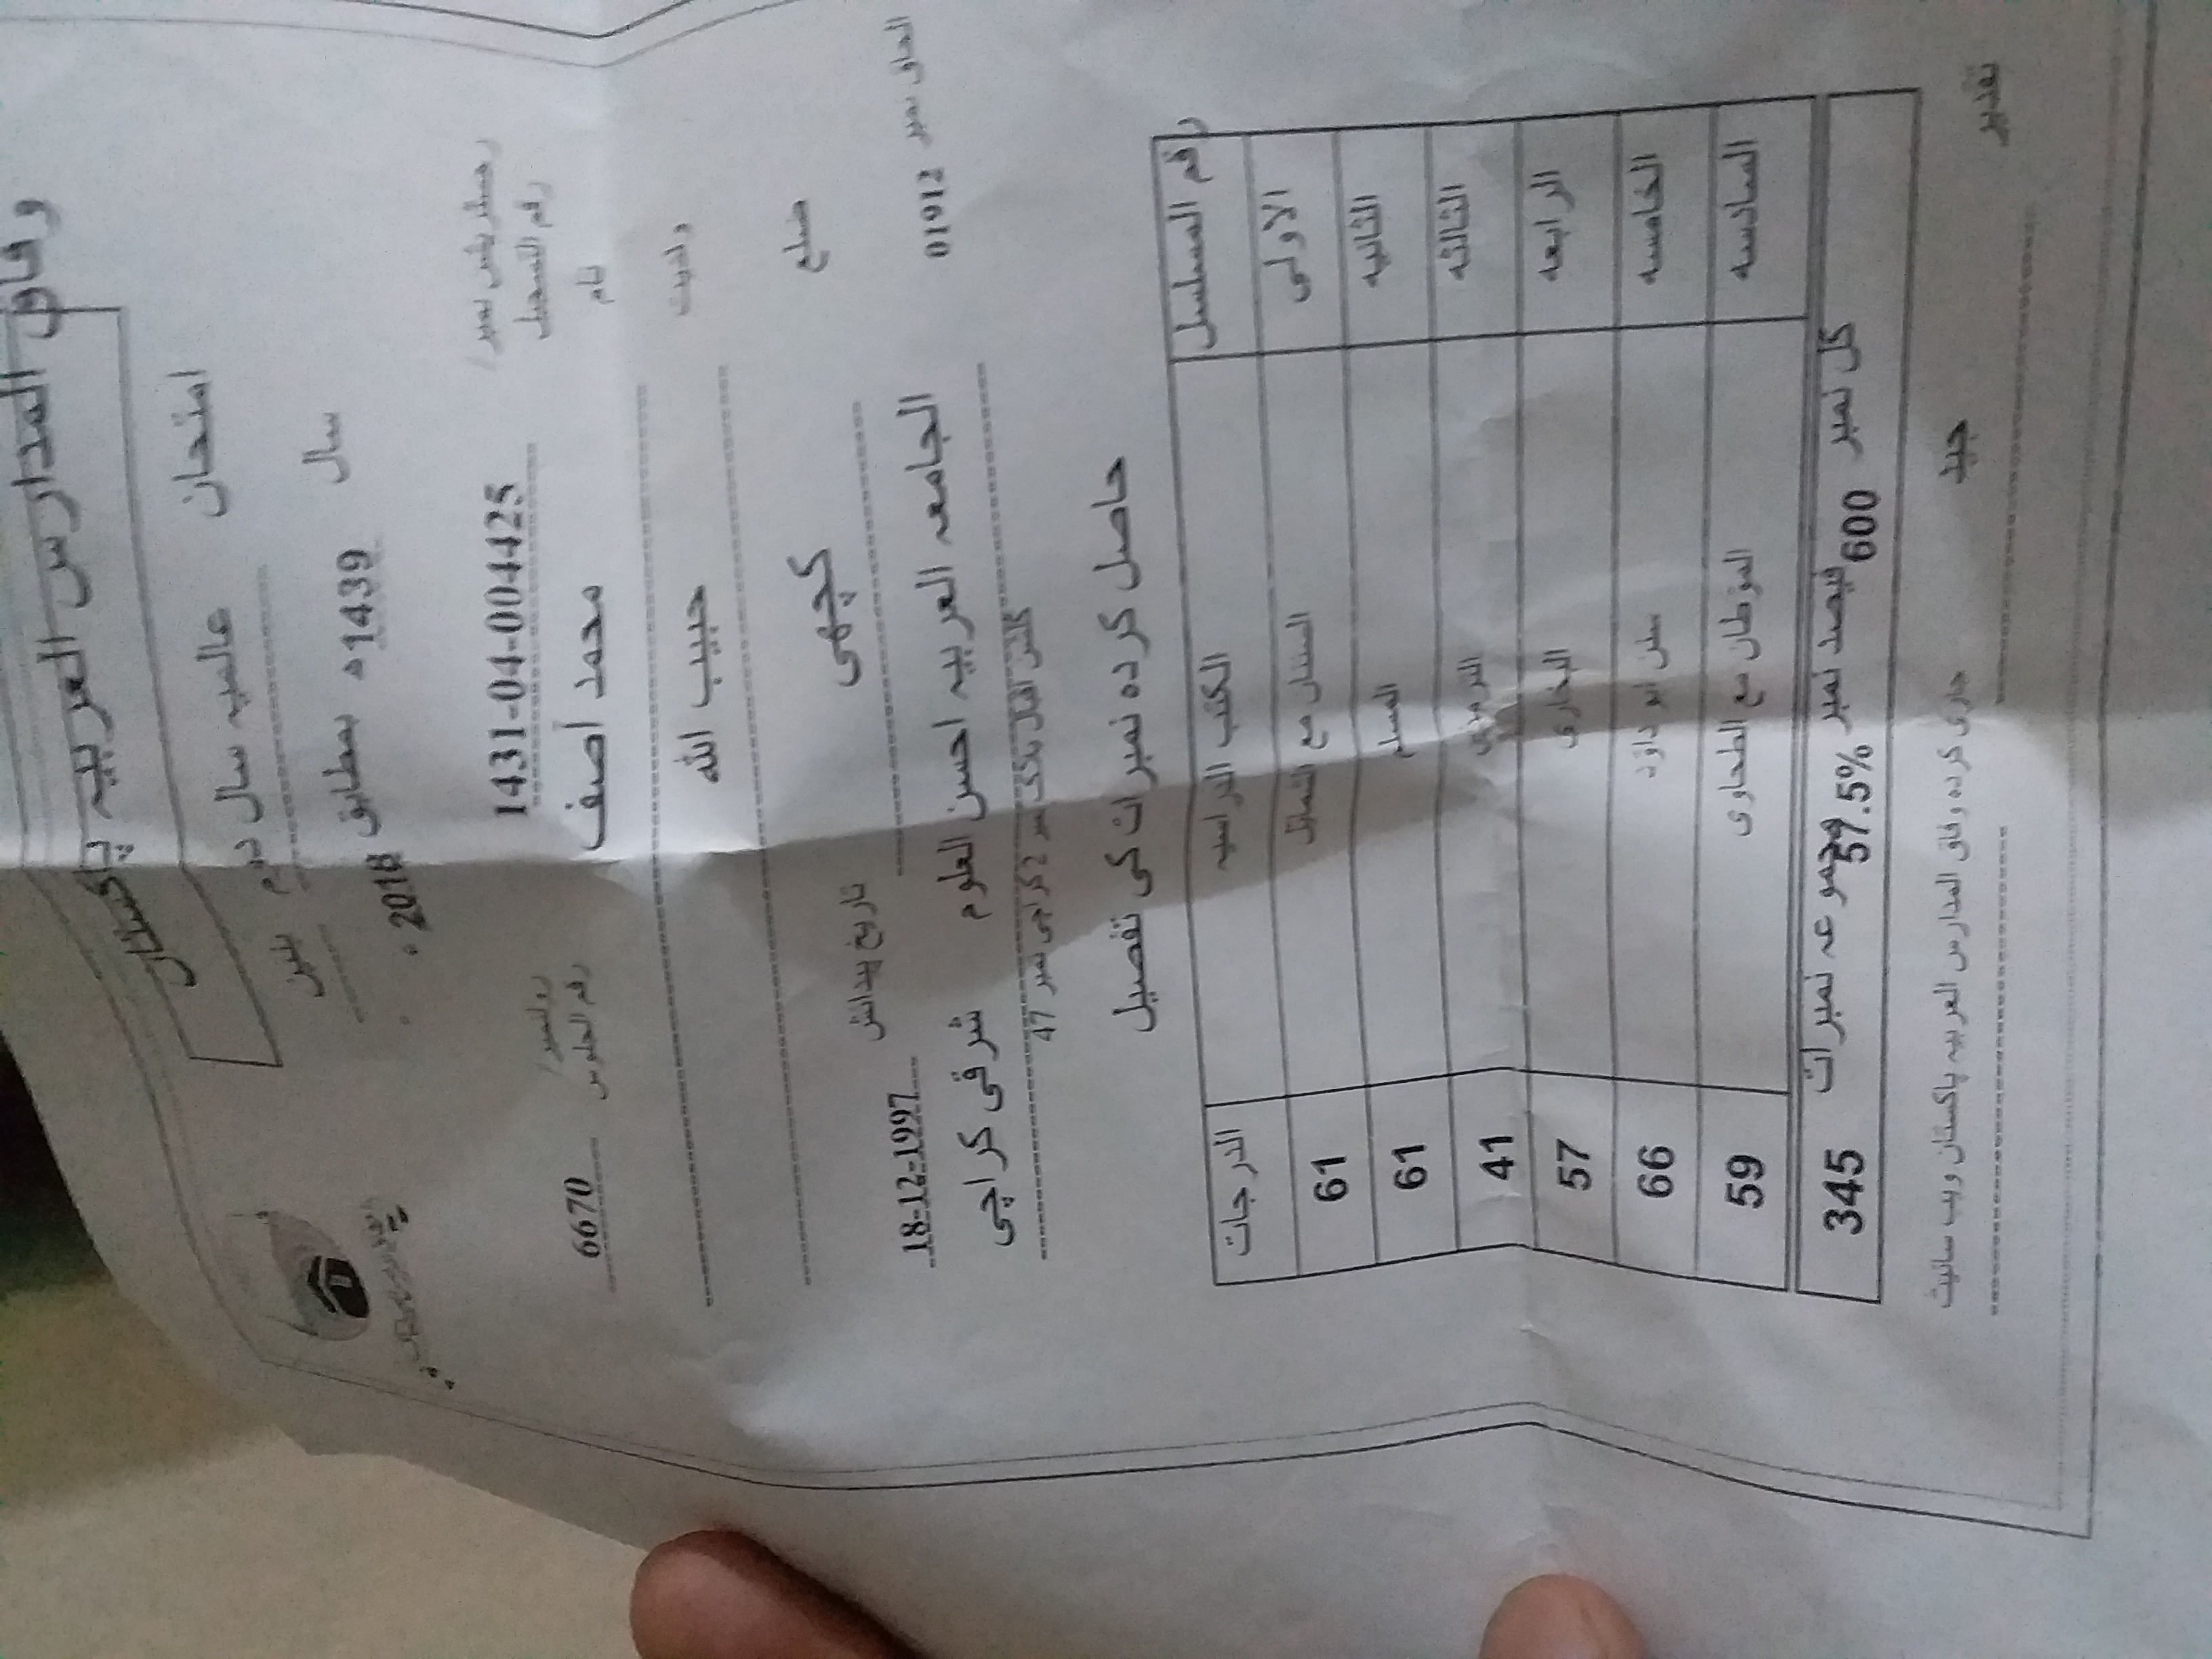 وفاق المدارس العربیہ پاکستان
امتحان عالمیہ سال دوم بنین
سال 1439ھ بمطابق 2018ء
رجسٹریشن نمبر/ رقم التسجیل 1431-04-004425 رولنمبر/ رقم الجلوس 6670
نام محمد آصف
ولدیت حبیب اللہ
ضلع کچھی تاریخ پیدائش 18-12-1997
الحاق نمبر 01912 الجامعہ العربیہ احسن العلوم شرقی کراچی
گلشن اقبال بلاک نمبر 2 کراچی نمبر 47
حاصل کردہ نمبرات کی تفصیل
رقم المسلسل الکتب الدراسیہ الدرجات
الاولی السنتان مع الشمائل 61
الثانیہ المسلم 61
الثالثہ الترمذی 41
الرابعہ البخاری 57
الخامسہ سنن ابو داؤد 66
السادسہ الموطان مع الطحاوی 59
کل نمبر 600 فیصد نمبر 57.5% مجموعہ نمبرات 345
تقدیر جید جاری کردہ وفاق المدارس العربیہ پاکستان ویب سائیٹ